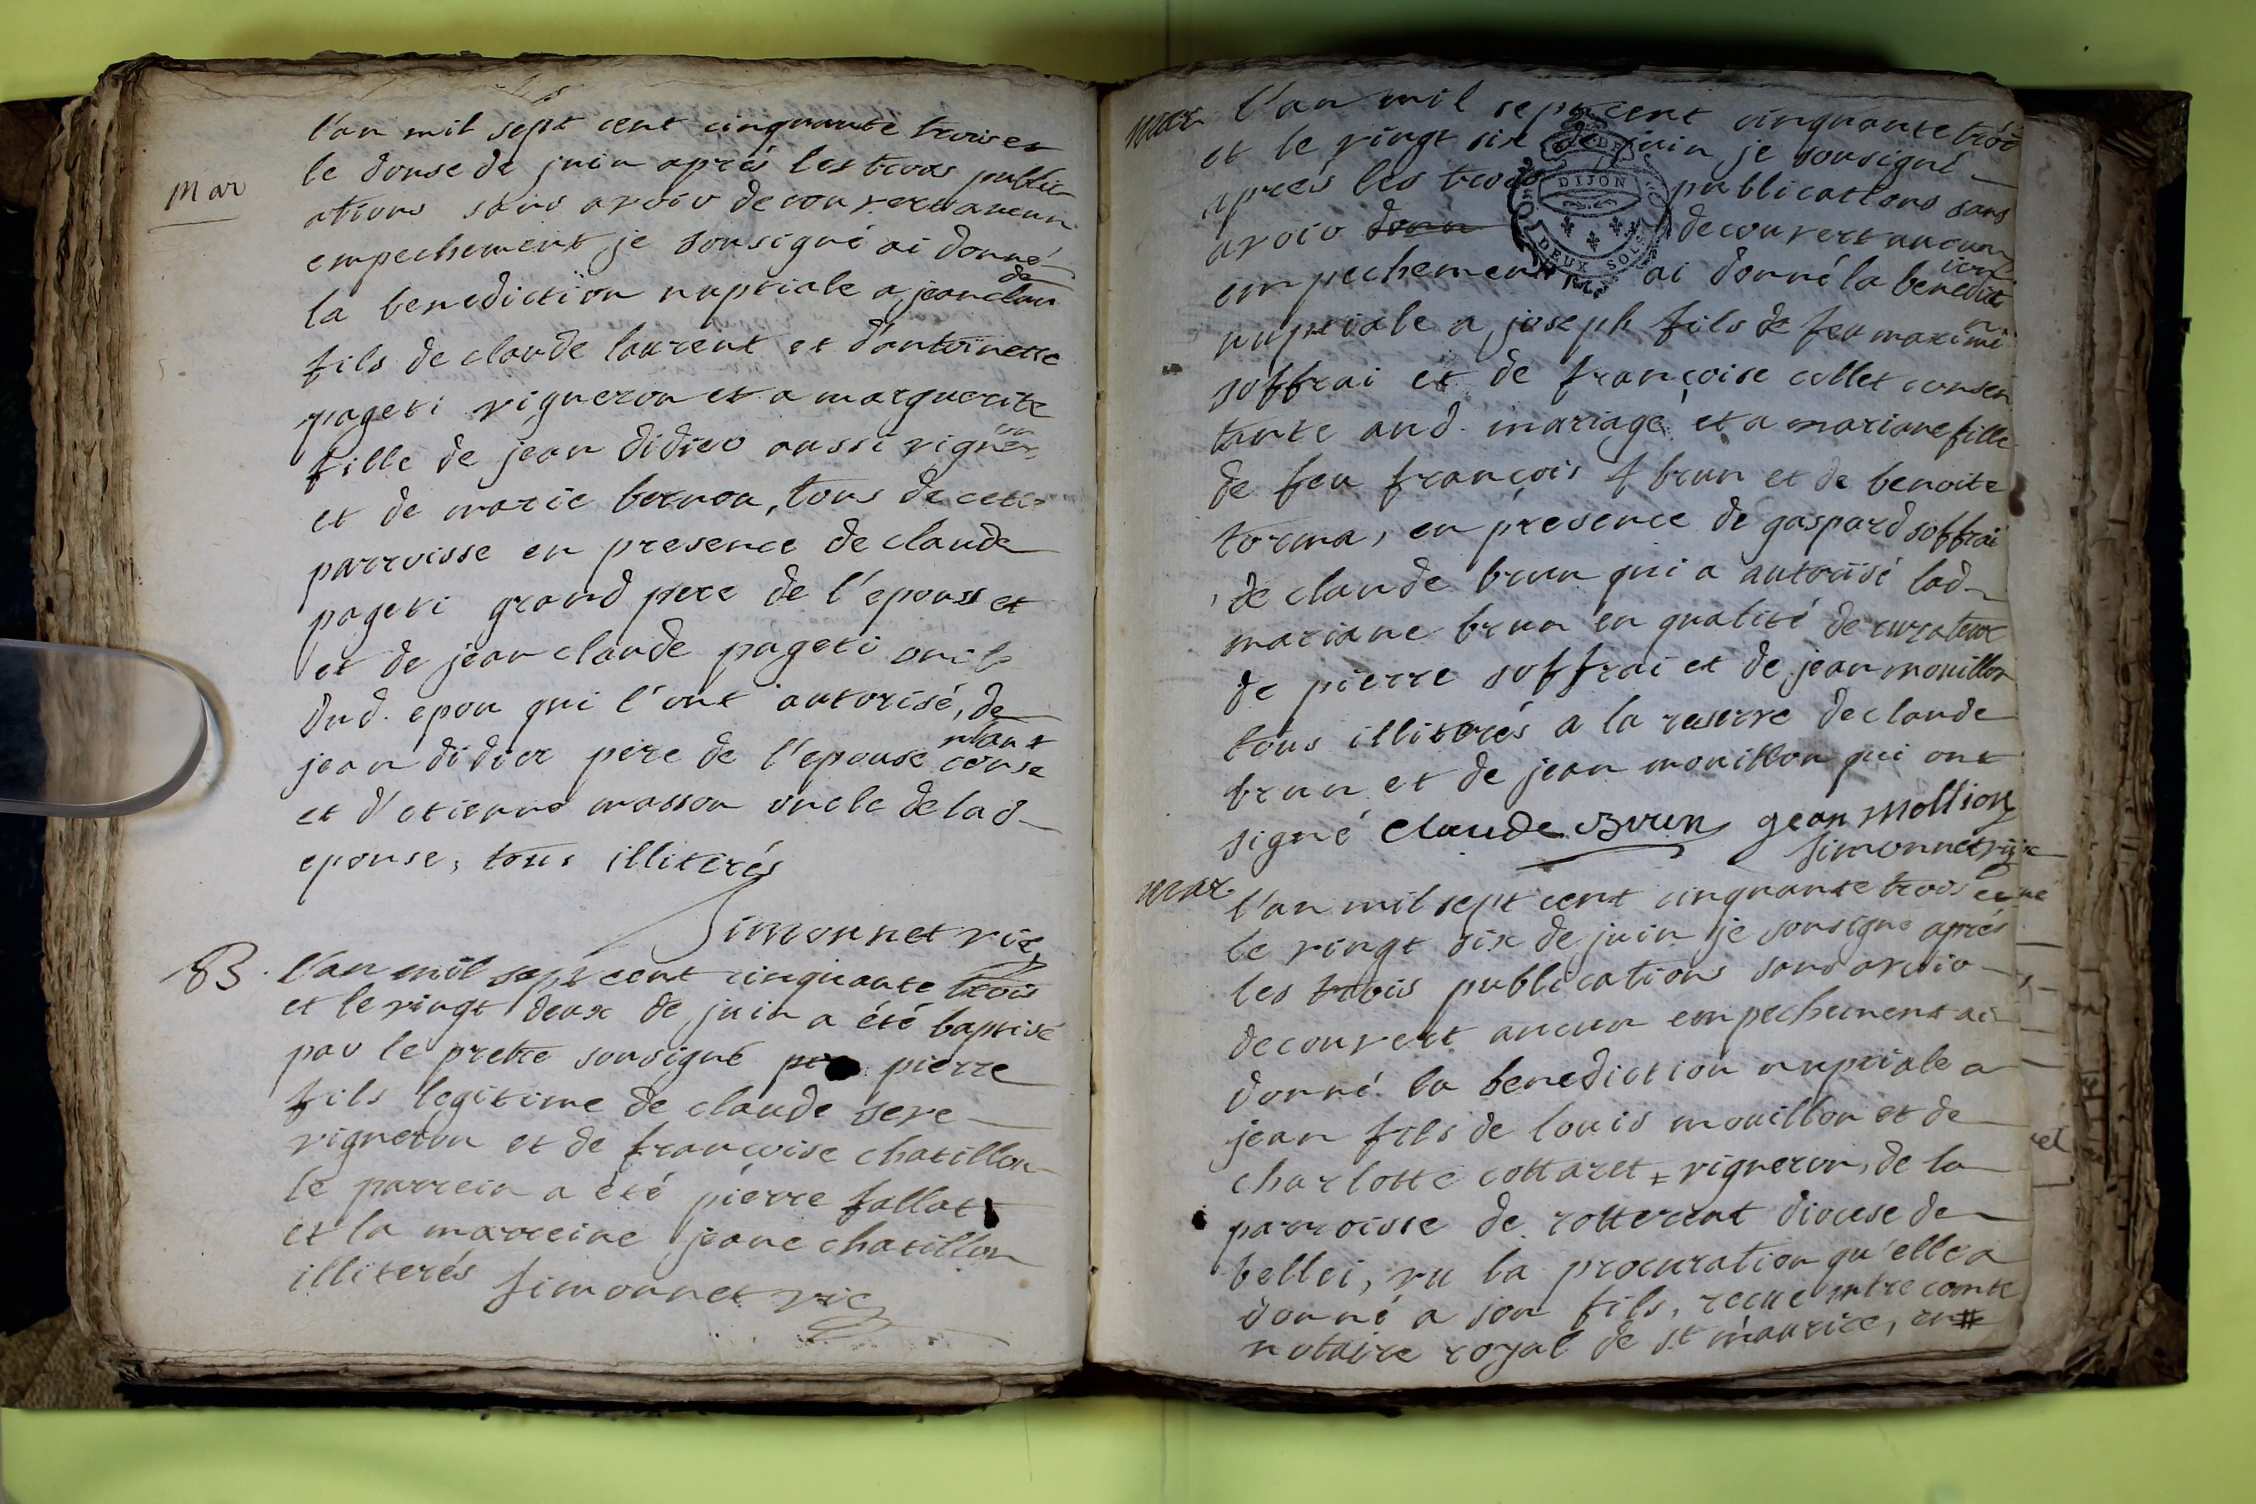 Mar
l'an mil sept cent cinquante trois et
le douse de juin aprés les trois public
ations sans avoir decouvert aucun
empechement je sousigné ai donné
la benediction nuptiale a jean claude
fils de claude laurent et d'antoinette
pageti vigneron et a marguerite
fille de jean didier aussi vigneron
et de marie bernon, tous de cette
parroisse en presence de claude
pageti grand pere de l'epoux et
et de jean claude pageti oncle
dud. epou qui l'ont autorisé, de
jean didier pere de l'epouse consentant
et d'etienne masson oncle de lad
epouse, tous illiterés
Simonnet vic
B. l'an mil sept cent cinquante trois
et le vingt deux de juin a été baptisé
par le pretre sousigné pierre
fils legitime de claude seve
vigneron et de françoise chatillon
le parrein a été pierre fallat
et la marreine jeane chatillon
illiterés Simonnet vic
mar l'an mil sept cent cinquante trois
et le vingt six de juin je sousigné
aprés les trois publications sans
avoir donn decouvert aucun
empechement ai donné la benediction
nuptiale a joseph fils de feu maximin
soffrai et de françoise collet consen
tante aud. mariage, et a mariane fille
de feu françois brun et de benoite
torma, en presence de gaspard soffrai
de claude brun qui a autorisé lad
mariane brun en qualité de curateur
de pierre soffrai et de jean mouillon
tous illiterés a la reserve de claude
brun et de jean mouillon qui ont
signé Claude Brun gean Mollion
Simonnet vic
mar l'an mil sept cent cinquante trois et
le vingt six de juin je sousigne aprés
les trois publications sans avoir
decouvert aucun empechement ai
donné la benediction nuptiale a
jean fils de louis mouillon et de
charlotte cottaret vigneron, de la
parroisse de rotterent diocese de
bellei, vu la procuration qu'elle a
donné a son fils, recue mtre comte
notaire royal de st maurice, en #